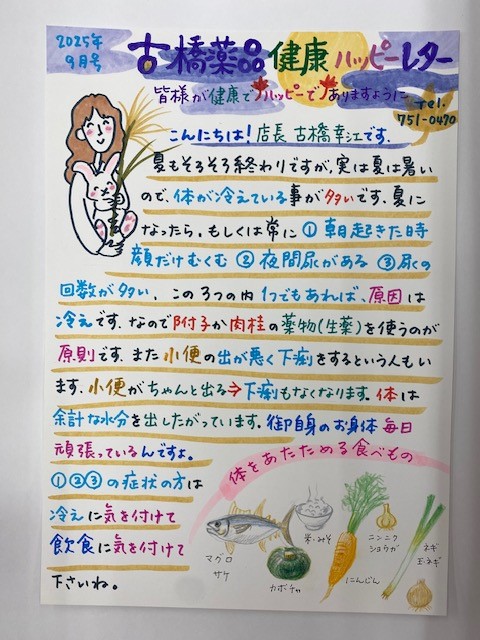 2025年
9月号
古橋薬品 健康 ハッピーレター
皆様が健康でハッピーでありますように
Tel.
751-0470
こんにちは! 店長 古橋幸江です.
夏もそろそろ終わりですが, 実は夏は暑い
ので, 体が冷えている事が多いです. 夏に
なったら, もしくは常に ① 朝起きた時
顔だけむくむ ② 夜間尿がある ③ 尿の
回数が多い, この3つの内1つでもあれば, 原因は
冷えです. なので附子か肉桂の薬物(生薬)を使うのが
原則です. また小便の出が悪く下痢をするという人もい
ます. 小便がちゃんと出る→下痢もなくなります. 体は
余計な水分を出したがっています. 御自身のお身体 毎日
頑張っているんですよ。
①②③の症状の方は
冷えに気を付けて
飲食に気を付けて
下さいね。
体をあたためる食べもの
マグロ
サケ
米・みそ
カボチャ
にんじん
ニンニク
ショウガ
ネギ
玉ネギ